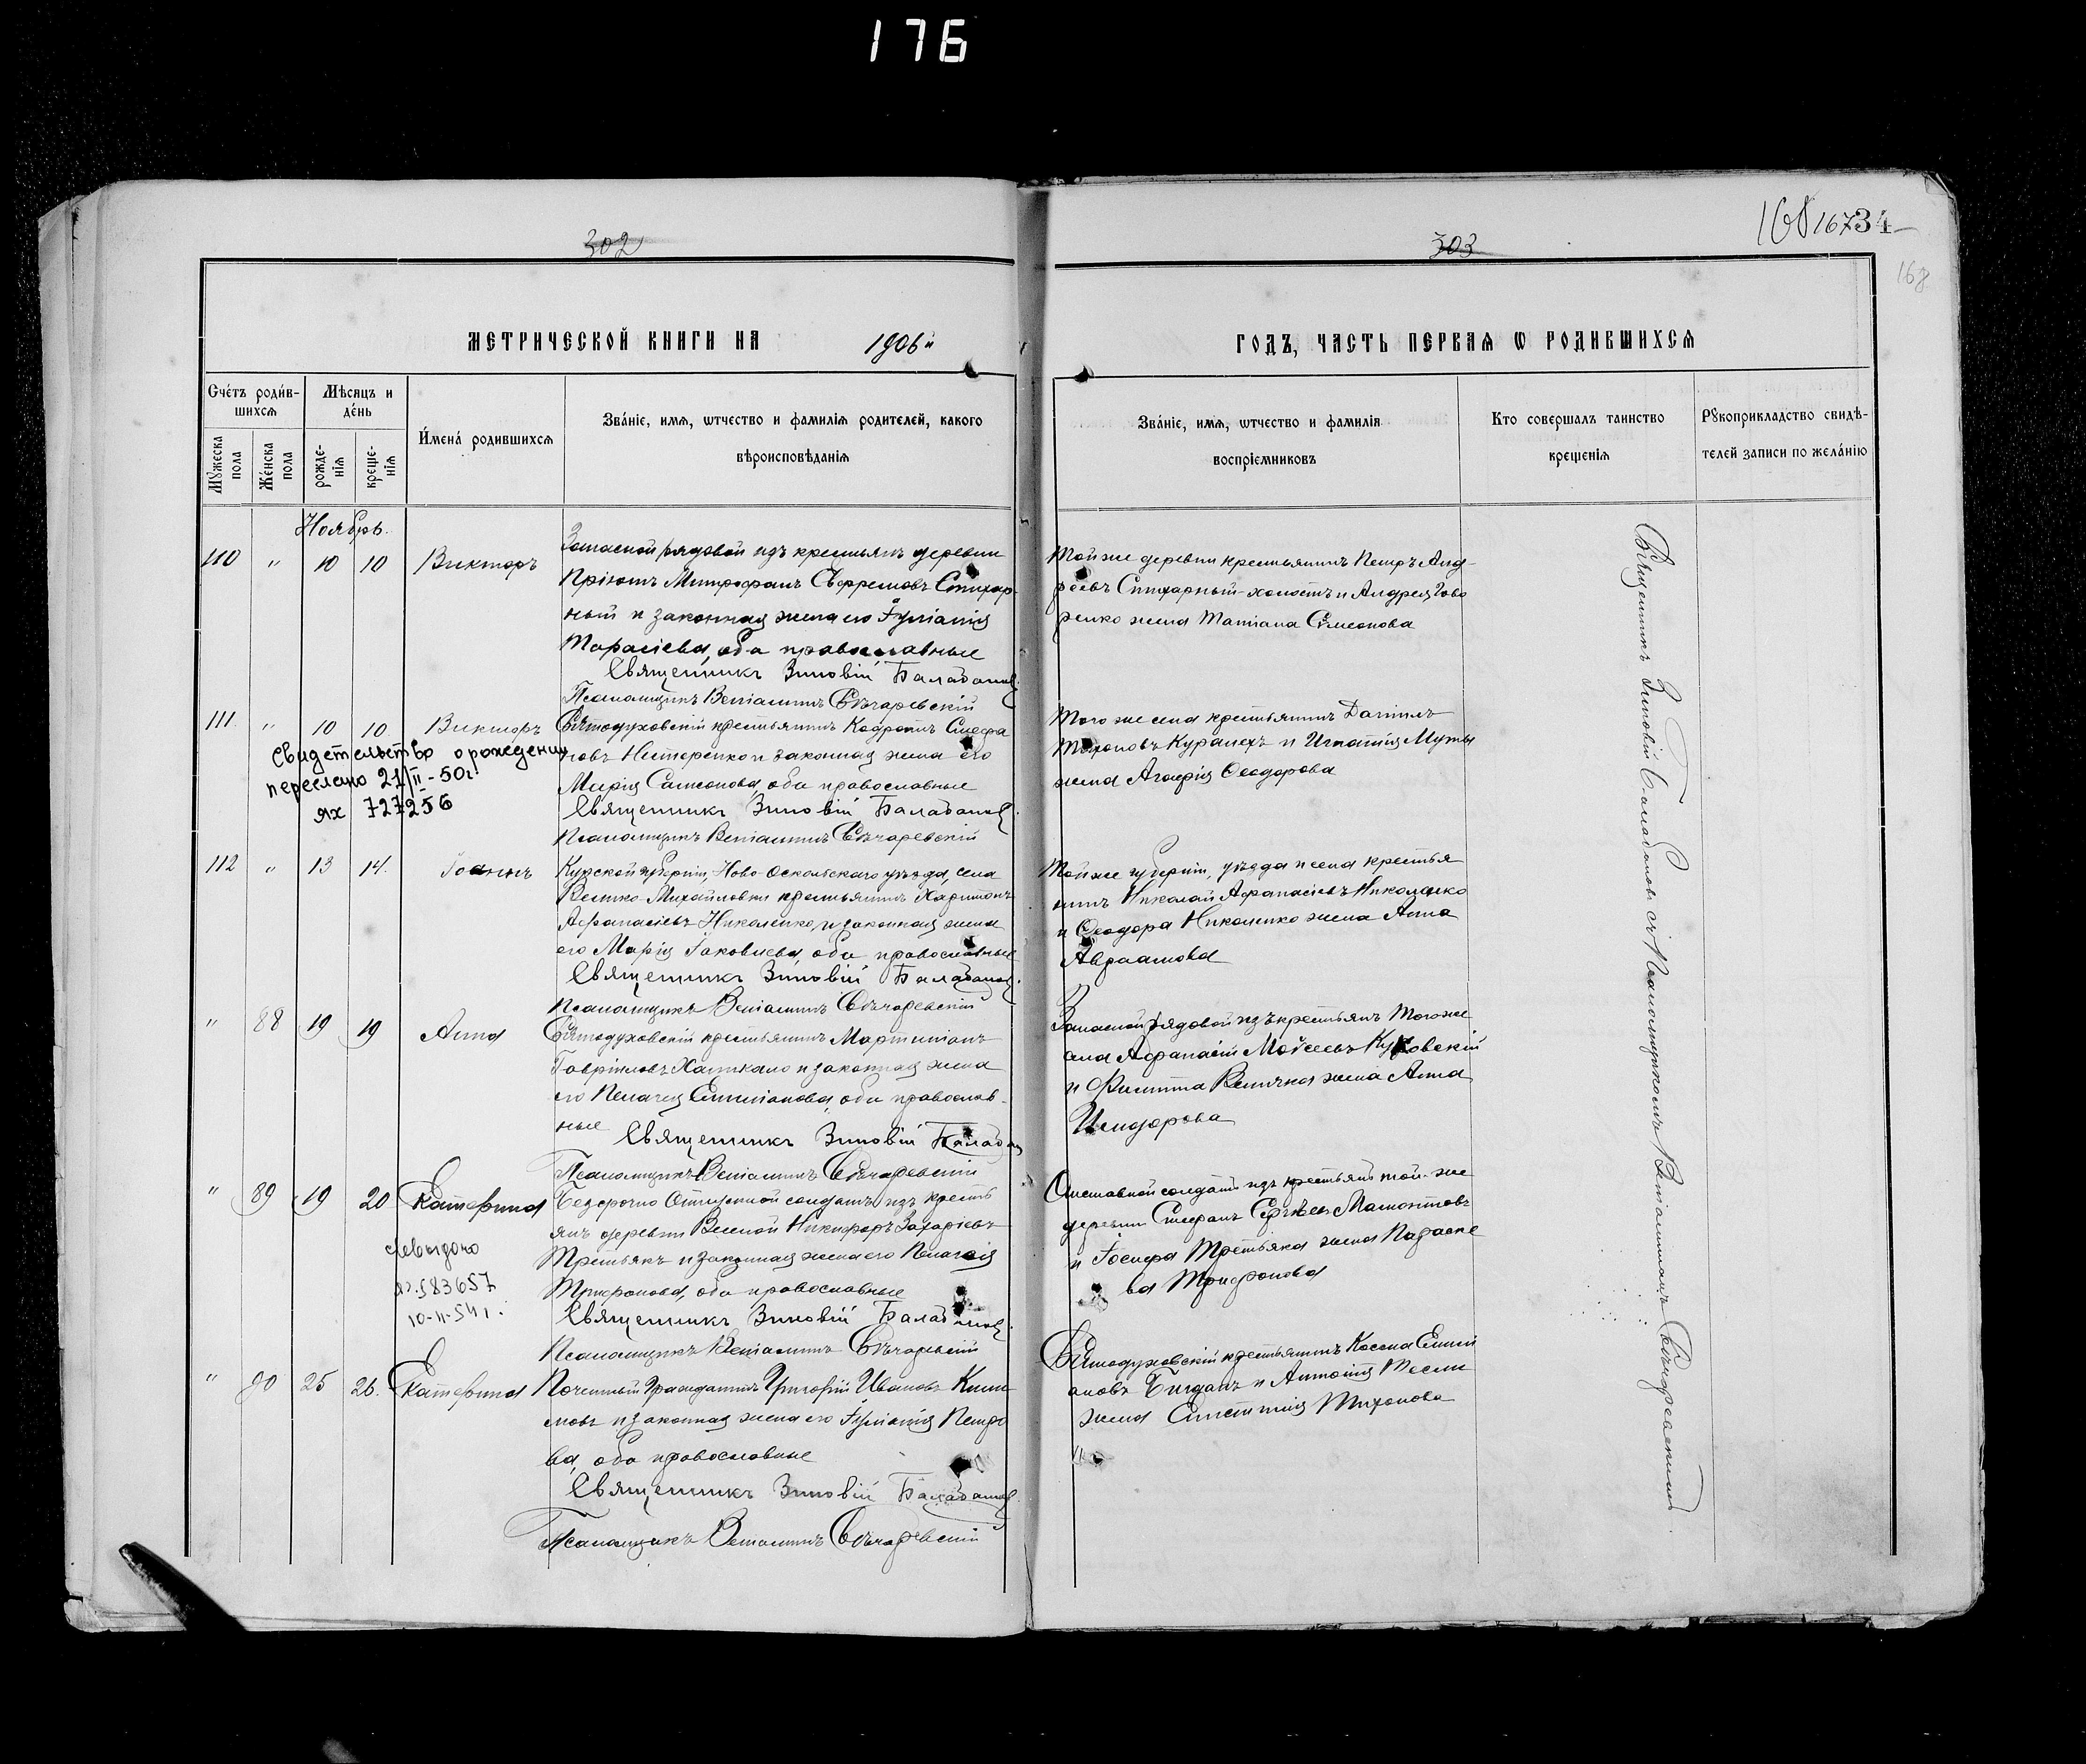 176
302
303
168 167 34
168
МЕТРИЧЕСКОЙ КНИГИ НА 1906й
ГОДЪ, ЧАСТЬ ПЕРВАЯ Ѡ РОДИВШИХСЯ
Счётъ роди́в-
шихся
Мѣсяцъ и
де́нь
Мꙋжеска
пола
Же́нска
пола
рожде-
нія
креще-
нія
И́мена́ родившихся
Зва́ніе, имя, ѿтчество и фамилія родителей, какого
вѣроисповѣданія
Зва́ніе, имя, ѿтчество и фамилія
воспріемниковъ
Кто совершалъ таинство
крещенія
Рꙋкоприкладство свидѣ-
телей записи по жела́нію
Ноябрь.
110 " 10 10 Викторъ
Запасной рядовой изъ крестьянъ деревни
Пріютъ Митрофанъ Ефремовъ Стихар-
ный и законная жена его Іуліанія
Тарасіева, оба православные
Священникъ Зиновій Балабановъ
Псаломщикъ Веніаминъ Свѣчаревскій
Той же деревни крестьянинъ Петръ Анд-
реевъ Стихарный-холостъ и Андрея Гово
ренко жена Татіана Сѵмеонова
111. " 10 10 Викторъ
Свидетельство о рождении
переслано 21/II-50г.
ях 727256
Святодуховскій крестьянинъ Кодратъ Стефа
новъ Нестеренко и законная жена его
Марія Самсонова, оба православные
Священникъ Зиновій Балабановъ
Псаломщикъ Веніаминъ Свѣчаревскій
Того же села крестьянинъ Даніилъ
Тихоновъ Куралехъ и Игнатія Мухи
жена Агафія Ѳеодорова
112 " 13 14. Іоаннъ
Курской губерніи, Ново-Оскольскаго уѣзда, села
Велико-Михайловки крестьянинъ Харитонъ
Аѳанасіевъ Николенко, и законная жена
его Марія Іаковлева, оба православные
Священникъ Зиновій Балабановъ
Псаломщикъ Веніаминъ Свѣчаревскій
Той же губерніи, уѣзда и села крестья
нинъ Николай Аѳанасіевъ Николенко
и Ѳеодора Николенко жена Анна
Авраамова
" 88 19 19 Анна
Святодуховскій крестьянинъ Мартиніанъ
Гавріиловъ и законная жена
его Пелагія Емиліанова, оба православ-
ные Священникъ Зиновій Балабан
Псаломщикъ Веніаминъ Свѣчаревскій
Запасной рядовой изъ крестьянъ того же
села Аѳанасій Моѵсеевъ Куковскій
и Филиппа Величка жена Анна
Исидорова
" 89 19 20 Екатерина
№ 583657
10-II-54г.
Безсрочно Отпускной солдатъ изъ кресть
янъ деревни Веселой Никифоръ Захаріевъ
Третьякъ и законная жена его Пелагія
Трифонова, оба православные
Священникъ Зиновій Балабановъ
Псаломщикъ Веніаминъ Свѣчаревскій
Отставной солдатъ изъ крестьянъ той-же
деревни Стефанъ Сергѣевъ Мамонтовъ
и Іосифа Третьяка жена Параске
ва Трифонова
" 90 25 26. Екатерина
Почетный Гражданинъ Григорій Ивановъ Клим
мовъ и законная жена его Іуліанія Петро
ва, оба православные
Священникъ Зиновій Балабановъ
Псаломщикъ Веніаминъ Свѣчаревскій
Святодуховскій крестьянинъ Косма Емили
ановъ и Антонія Тесли
жена Тихонова
Священникъ Зиновій Балабановъ съ Псаломщикомъ Веніаминомъ Свѣчаревскимъ